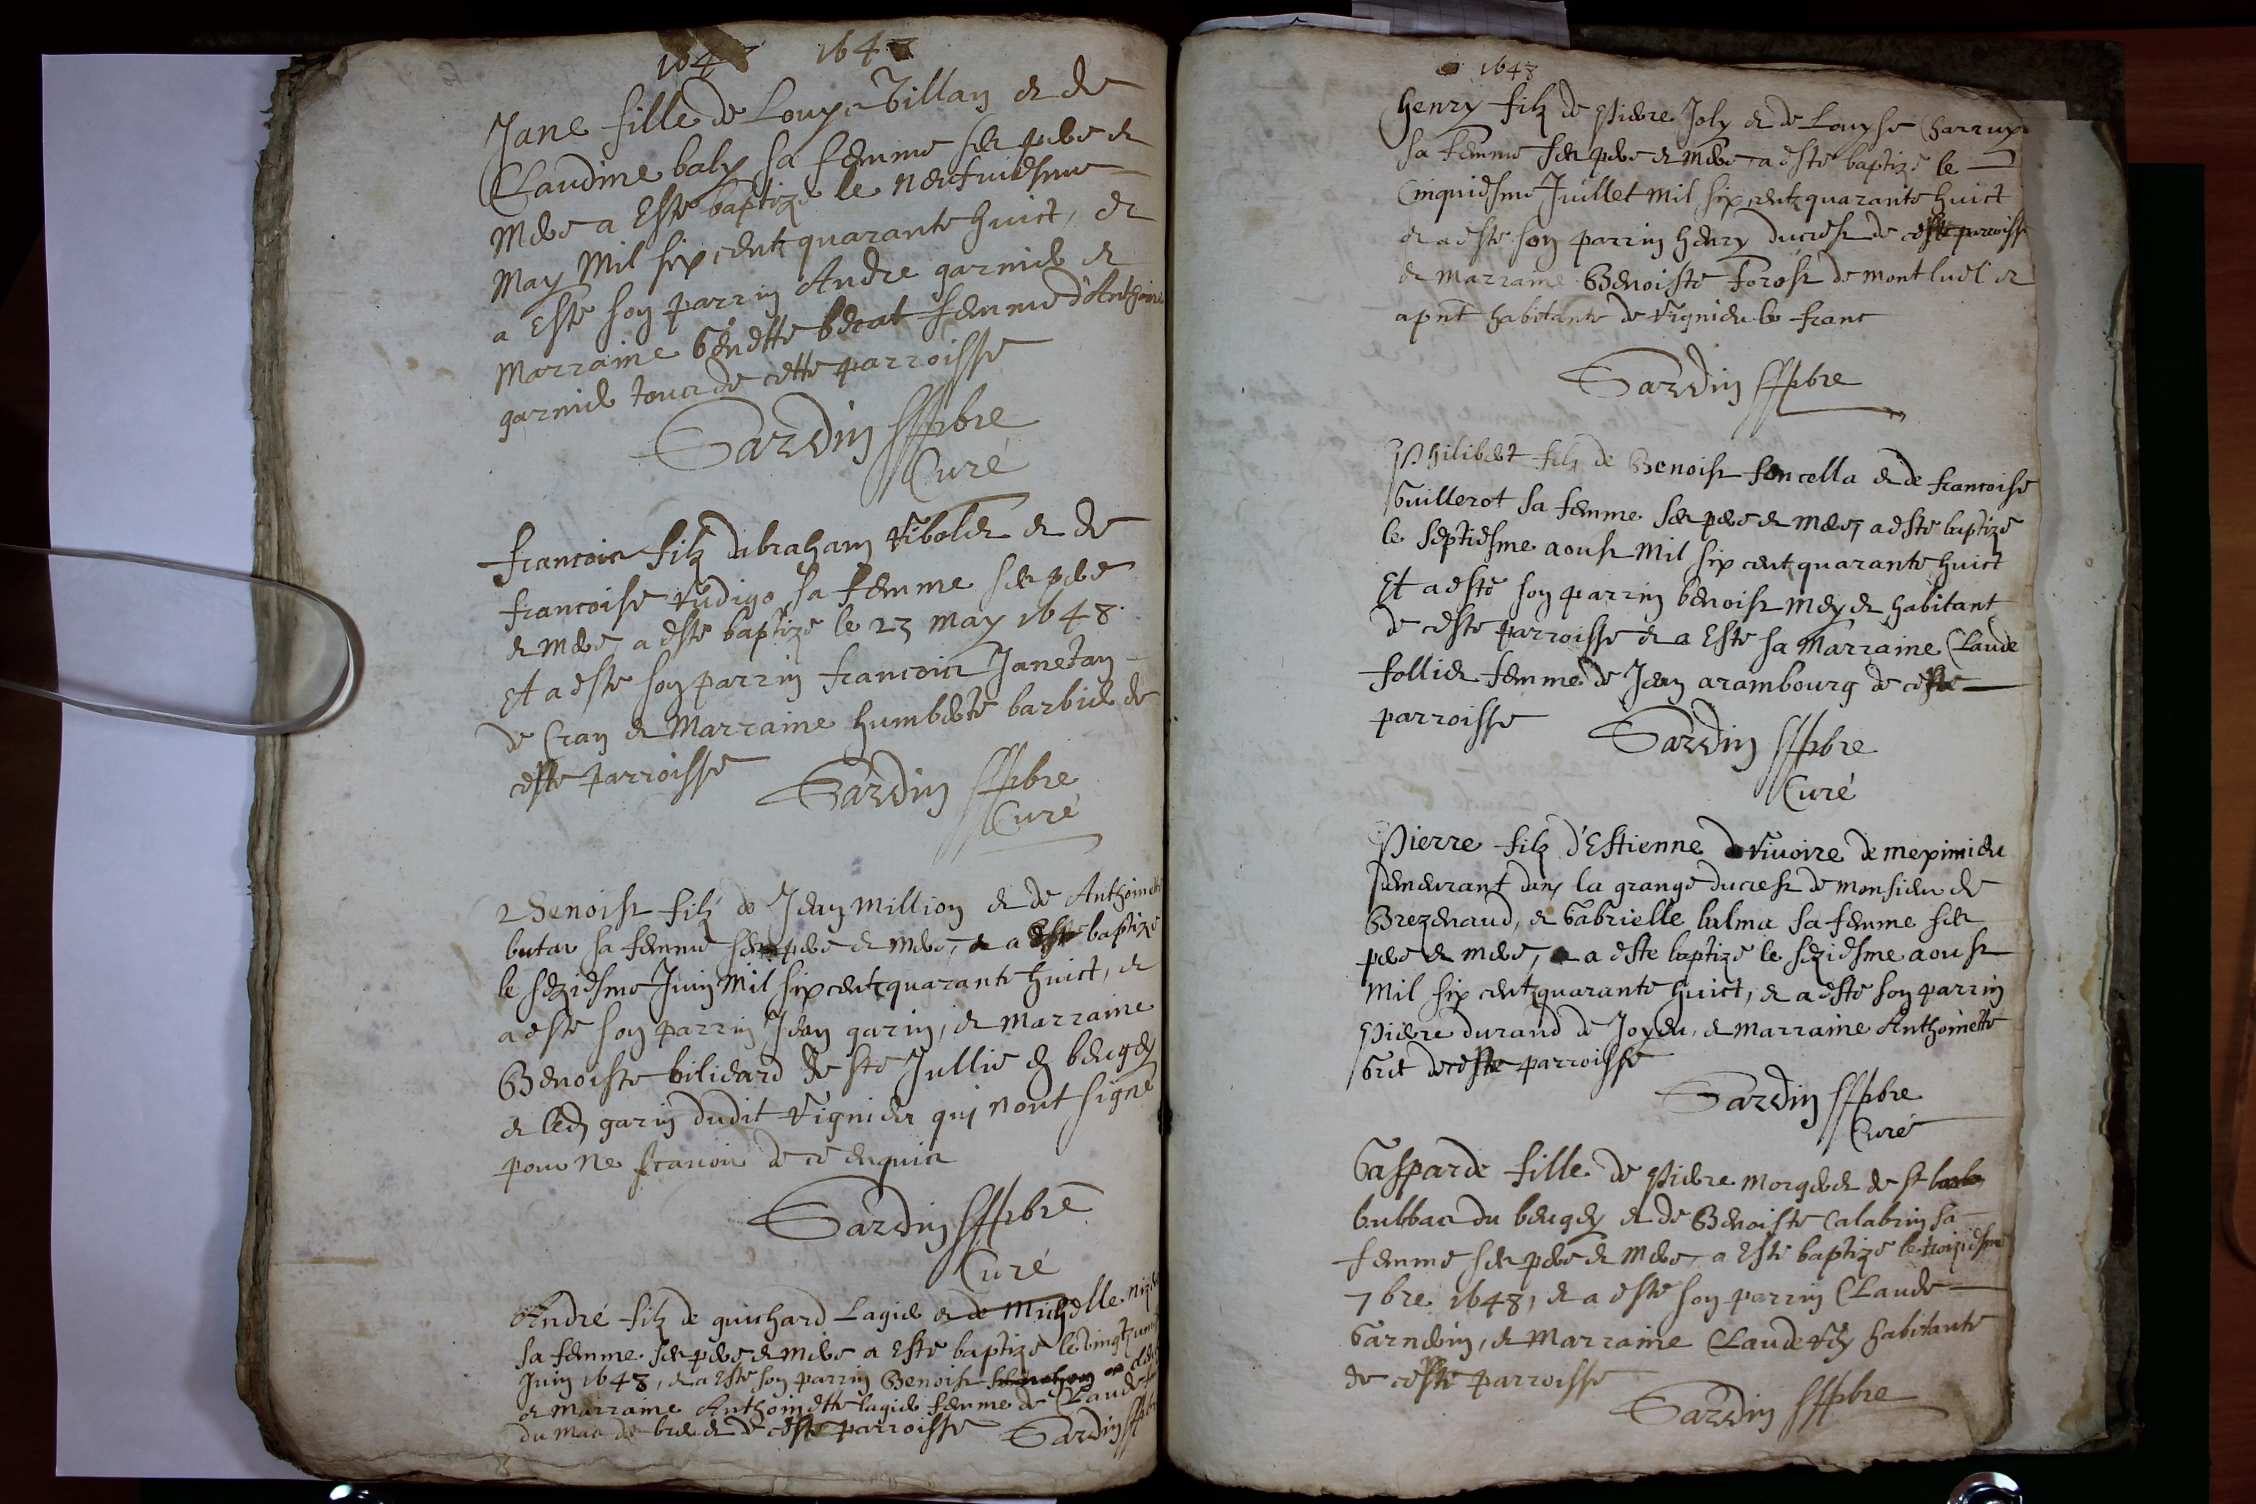 1648 1648
Jane fille de Louys Tillan et de
Claudine baly sa femme ses pere et
Mere a Este baptize le neufuiesme
May Mil six centz quarante huict, et
a Este son parrin Andre garnier et
Marraine benette femme d'Anthoine
garnier tous de cette parroisse
Sardin pbre
Curé
francois filz dabraham et de
francoise sa femme ses pere
et mere, a esté baptizé le 23 may 1648
Et a este son parrin francois Janetan
de Cran et Marraine humberte barbier de
ceste parroisse
Sardin pbre
Curé
Benoist filz de Jean Million et de Anthoinette
sa femme ses pere et mere, a Esté baptizé
le seziesme Juin Mil six centz quarante huict, et
a esté son parrin Jean garin, et Marraine
Benoiste bilieard de ste Jullie en beugey
et led garin dudit Vignieu qui nont signé
pour ne scauoir de ce enquis
Sardin pbre
Curé
André filz de guichard Lagier et de Michelle
sa femme ses pere et mere a Este baptizé le vingt
Juin 1648, et a Este son parrin Benoist
et Marraine Anthoinette lagier femme de Claude
du mas de et de ceste parroisse Sardin pbre
1648
henry filz de Pierre Joly et de Louyse Charruy
sa femme ses pere et mere, a esté baptizé le
Cinquiesme Juillet Mil six centz quarante huict
et a esté son parrin henry ducrest de ceste parroisse
et marraine Benoiste forost de montluel et
apnt habitante de Vignieu le franc
Sardin pbre
Philibert filz de Benoist foncella et de francoise
Guillerot sa femme ses pere et mere, a esté baptizé
le septiesme aoust Mil six centz quarante huict
Et a esté son parrin benoist habitant
de ceste parroisse et a Este sa Marraine Claude
follier femme de Jean arambourg de ceste
parroisse
Sardin pbre
Curé
Pierre filz d'Estienne Viuoire de meximieu
demeurant dans la grange ducrest de monsieur de
Brezenaud, et Gabrielle lalma sa femme ses
pere et mere, a este baptizé le seziesme aoust
Mil six centz quarante huict, et a esté son parrin
Pierre durand de Joyeu, et marraine Anthoinette
de ceste parroisse
Sardin pbre
Curé
Gasparde fille de Pierre de st
du beugey et de Benoiste Calabrin sa
femme ses pere et mere, a Esté baptizé le troiziesme
7bre 1648, et a esté son parrin Claude
Garnerin, et Marraine Claude habitante
de ceste parroisse
Sardin pbre